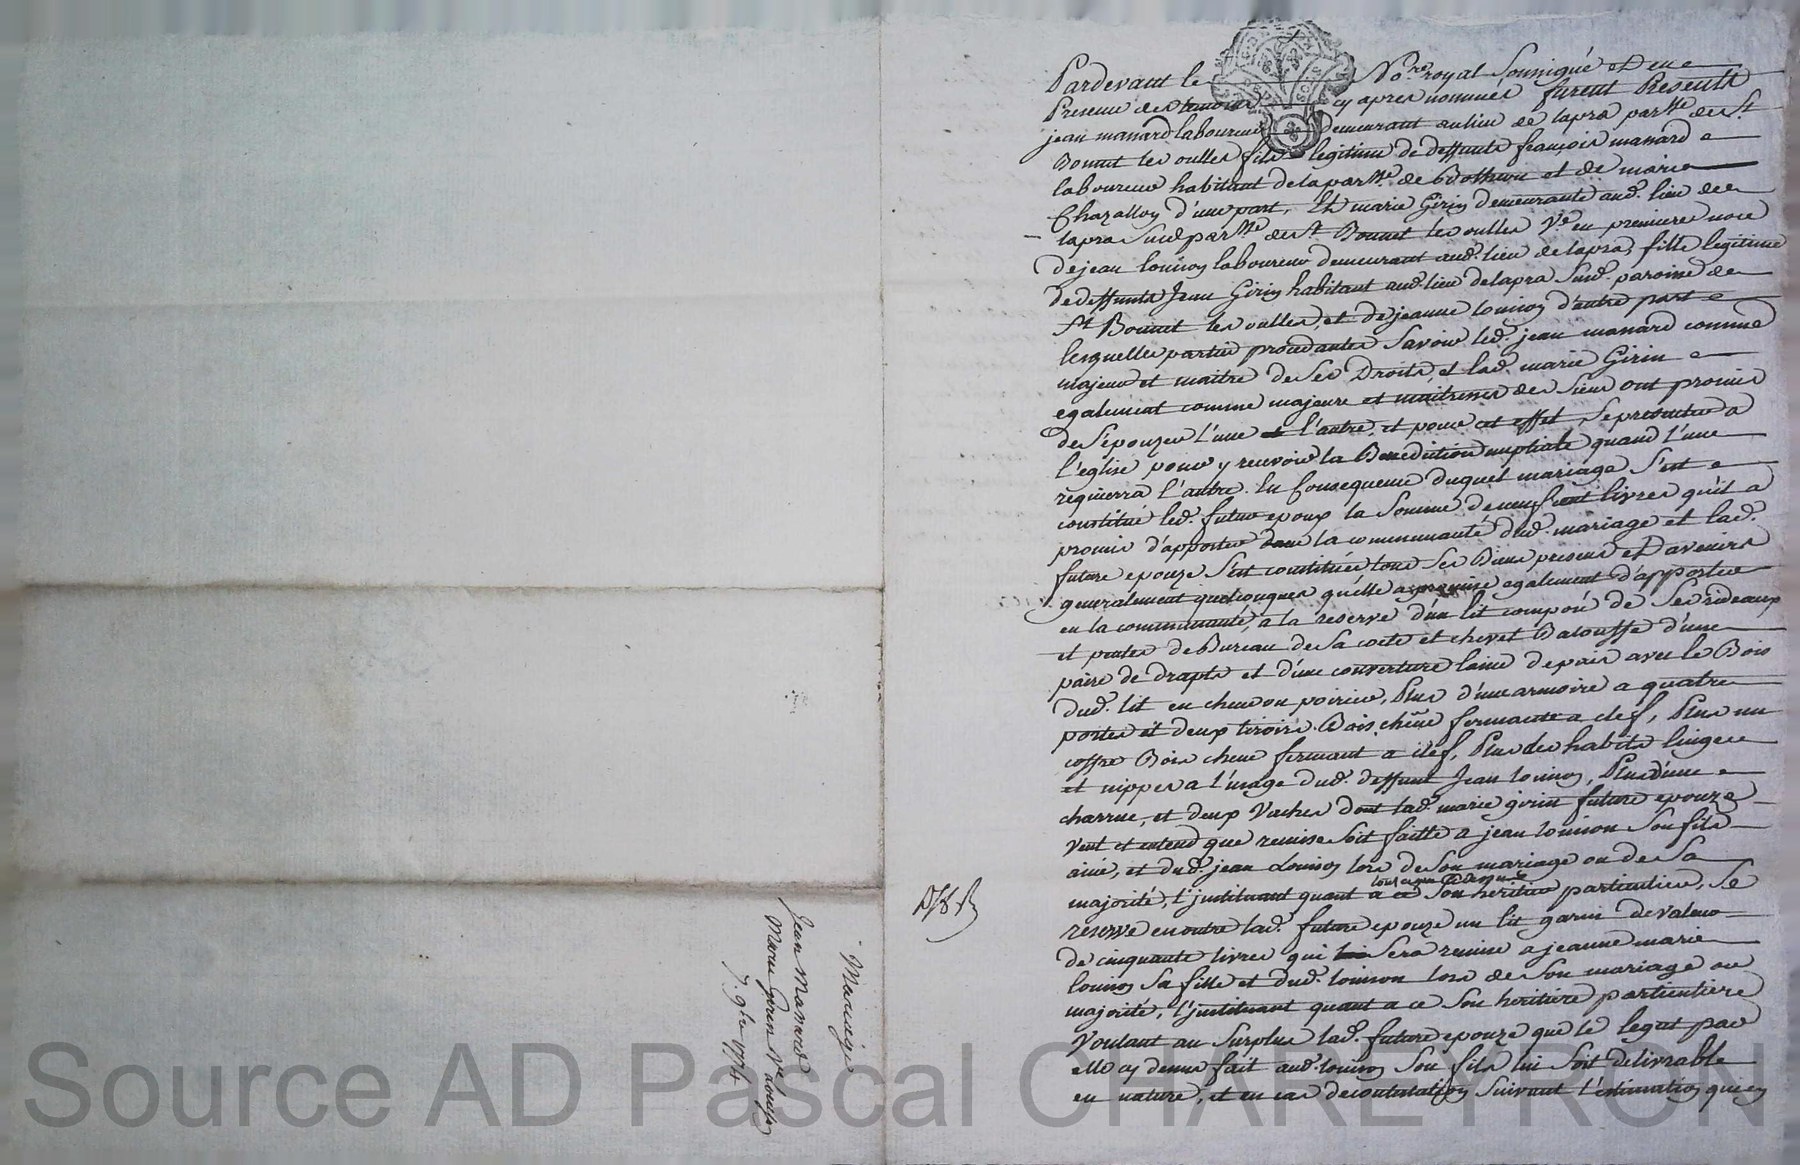 Pardevant le No.re royal Soussigné et en
Presence des temoins cy apres nommés furent Presents
jean manard laboureur Demeurant au lieu de lapra parsse de St
Bonnet les oulles fils legitime de deffunts françois manard
laboureur habitant de la parsse de Bothéon et de marie
Chazallon d'une part, Et marie Girin demeurante aud. lieu de
lapra Susd. parsse de St Bonnet les oulles Ve en premieres noce
de jean louison laboureur demeurant aud. lieu de lapra, fille legitime
de deffunts Jean Girin habitant aud. lieu de lapra Susd. paroisse de
St Bonnet les oulles, et de jeanne louison d'autre part
lesquelles parties procedantes Savoir led. jean manard comme
majeur et maitre de Ses Droits, et lad. marie Girin
egalement comme majeure et maitresse des Siens ont promis
de S'épouzer l'une et l'autre, et pour cet effet Se presenter a
l'eglise pour y recevoir la Benediction nuptiale quand l'une
requierra l'autre. En Consequence duquel mariage S'est
constitué led. futur epoux la Somme de neuf cent livres qu'il a
promis d'apporter dans la communauté dud. mariage et lad.
future epouze S'est constituée tous Ses Biens presens et avenirs
generalement quelconques qu'elle a promise egalement d'apporter
en la communauté, a la reserve d'un lit composé de Ses rideaux
et pentes de Bureau de Sa coete et chevet Balouffe d'une
paire de drapts et d'une couverture laine de pais avec le Bois
dud. lit en chene ou poirier, Plus d'une armoire a quatre
portes et deux tiroirs Bois chêne fermante a clef, Plus un
coffre Bois chene fermant a clef, Plus des habits linges
et nippes a l'usage dud. deffunt Jean louison, Plus d'une
charrue, et deux Vaches dont lad. marie girin future epouze
Veut et entend que remise Soit faitte a jean louison Son fils
ainé, et dud. jean Louison lors de Son mariage ou de Sa
majorité, l'jnstituant quant a ce Son heritier particulier, Se
reserve en outre lad. future epouze un lit garni de valeur
de cinquante livres qui Sera remise a jeanne marie
louison Sa fille et dud. louison lors de Son mariage ou
majorité, l'jnstituant quant a ce Son heritiere particuliere
Voulant au Surplus lad. future epouze que le legat par
elle cy dessus fait aud. louison Son fils lui Soit delivrable
en nature, et en cas de contestation Suivant l'estimation qui en
Mariage
Jean Manard
Marie Girin Ve
7. 9bre 1774
Source AD Pascal CHAREYRON